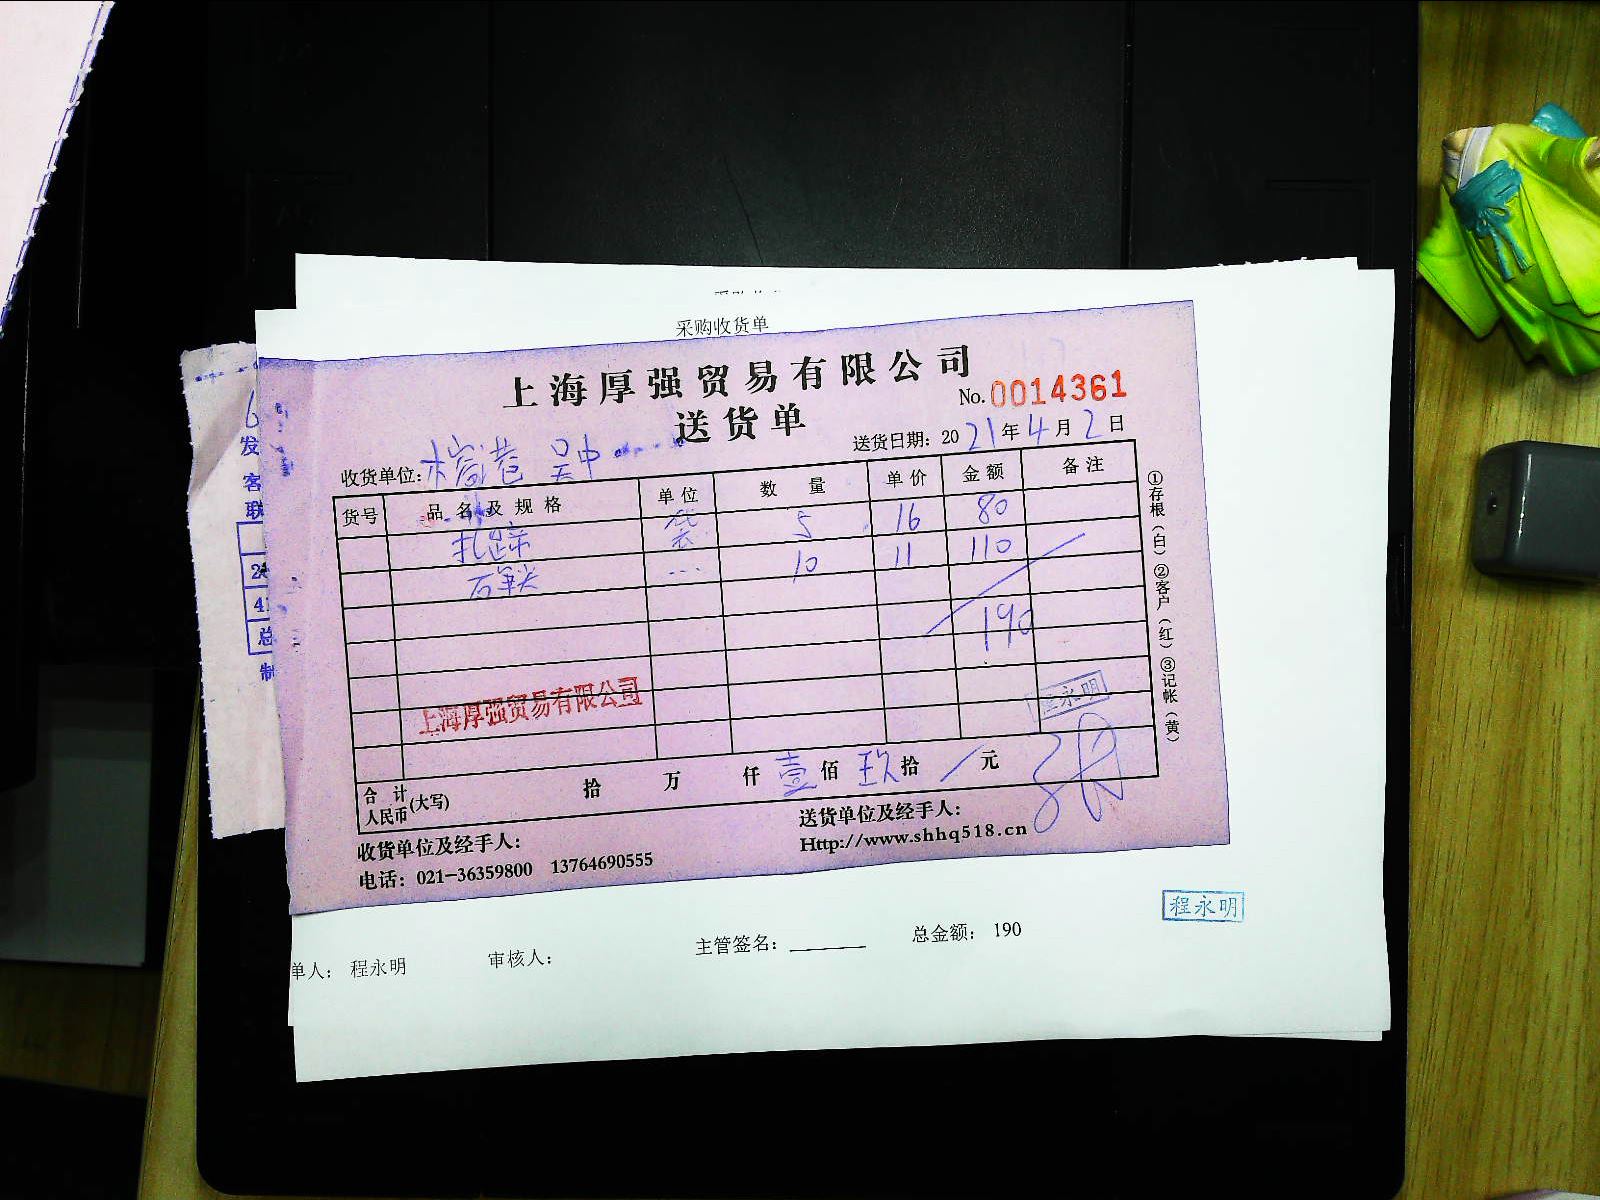 采购收货单
上海厚强贸易有限公司
No.0014361
送货单
送货日期：2021年4月2日
收货单位：
货号 品名及规格 单位 数量 单价 金额 备注
扎蹄 袋 5 16 80
10 11 110
190
上海厚强贸易有限公司
程永明
合计人民币(大写) 拾 万 仟 壹 佰 玖 拾 元
收货单位及经手人：
送货单位及经手人：
电话：021-36359800 13764690555
Http://www.shhq518.cn
①存根（白）②客户（红）③记帐（黄）
发
客
联
总
制
程永明
单人： 程永明 审核人： 主管签名： 总金额： 190